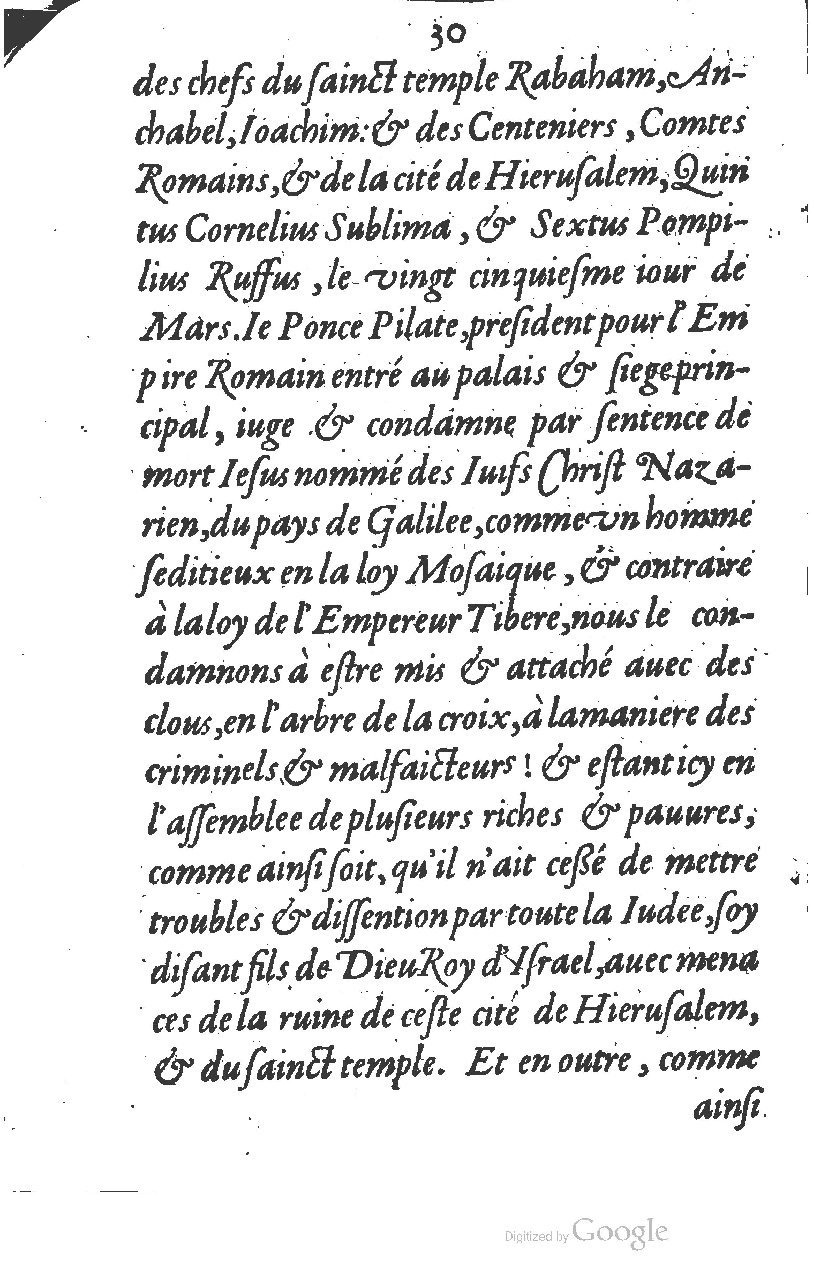 30
des chefs du ſainct temple Rabaham, An-
chabel, Ioachim: & des Centeniers, Comtes
Romains, & de la cité de Hieruſalem, Quin
tus Cornelius Sublima, & Sextus Pompi-
lius Ruffus, le vingt cinquieſme iour de
Mars. Ie Ponce Pilate, preſident pour l'Em
pire Romain entré au palais & ſiege prin-
cipal, iuge & condamne par ſentence de
mort Ieſus nommé des Iuifs Chriſt Naza-
rien, du pays de Galilee, comme vn homme
ſeditieux en la loy Moſaique, & contraire
à la loy de l'Empereur Tibere, nous le con-
damnons à eſtre mis & attaché auec des
clous, en l'arbre de la croix, à la maniere des
criminels & malfaicteurs! & eſtant icy en
l'aſſemblee de pluſieurs riches & pauures,
comme ainſi ſoit, qu'il n'ait ceßé de mettre
troubles & diſſention par toute la Iudee, ſoy
diſant fils de Dieu Roy d'Iſrael, auec mena
ces de la ruine de ceſte cité de Hieruſalem,
& du ſainct temple. Et en outre, comme
ainſi
Digitized by Google